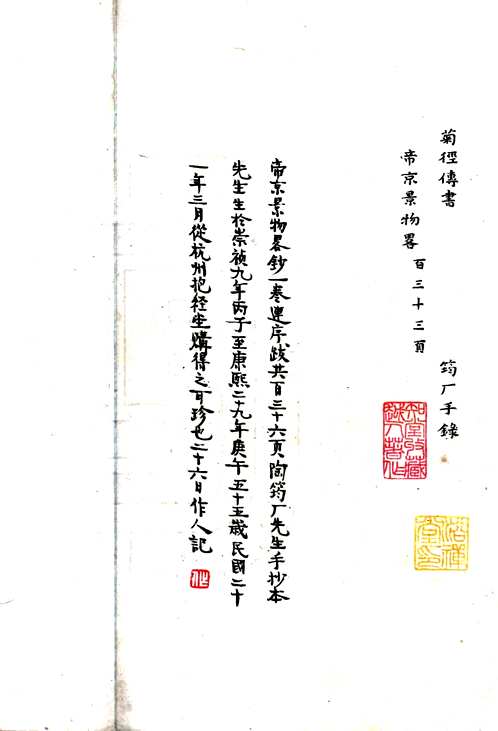 菊徑傳書　筠厂手錄
帝京景物畧　百三十三頁
帝京景物畧鈔一卷連序跋共百三十六頁陶筠厂先生手抄本
先生生於崇禎九年丙子至康熙二十九年庚午五十五歲民國二十
一年三月從杭州抱经堂購得之可珍也二十六日作人記